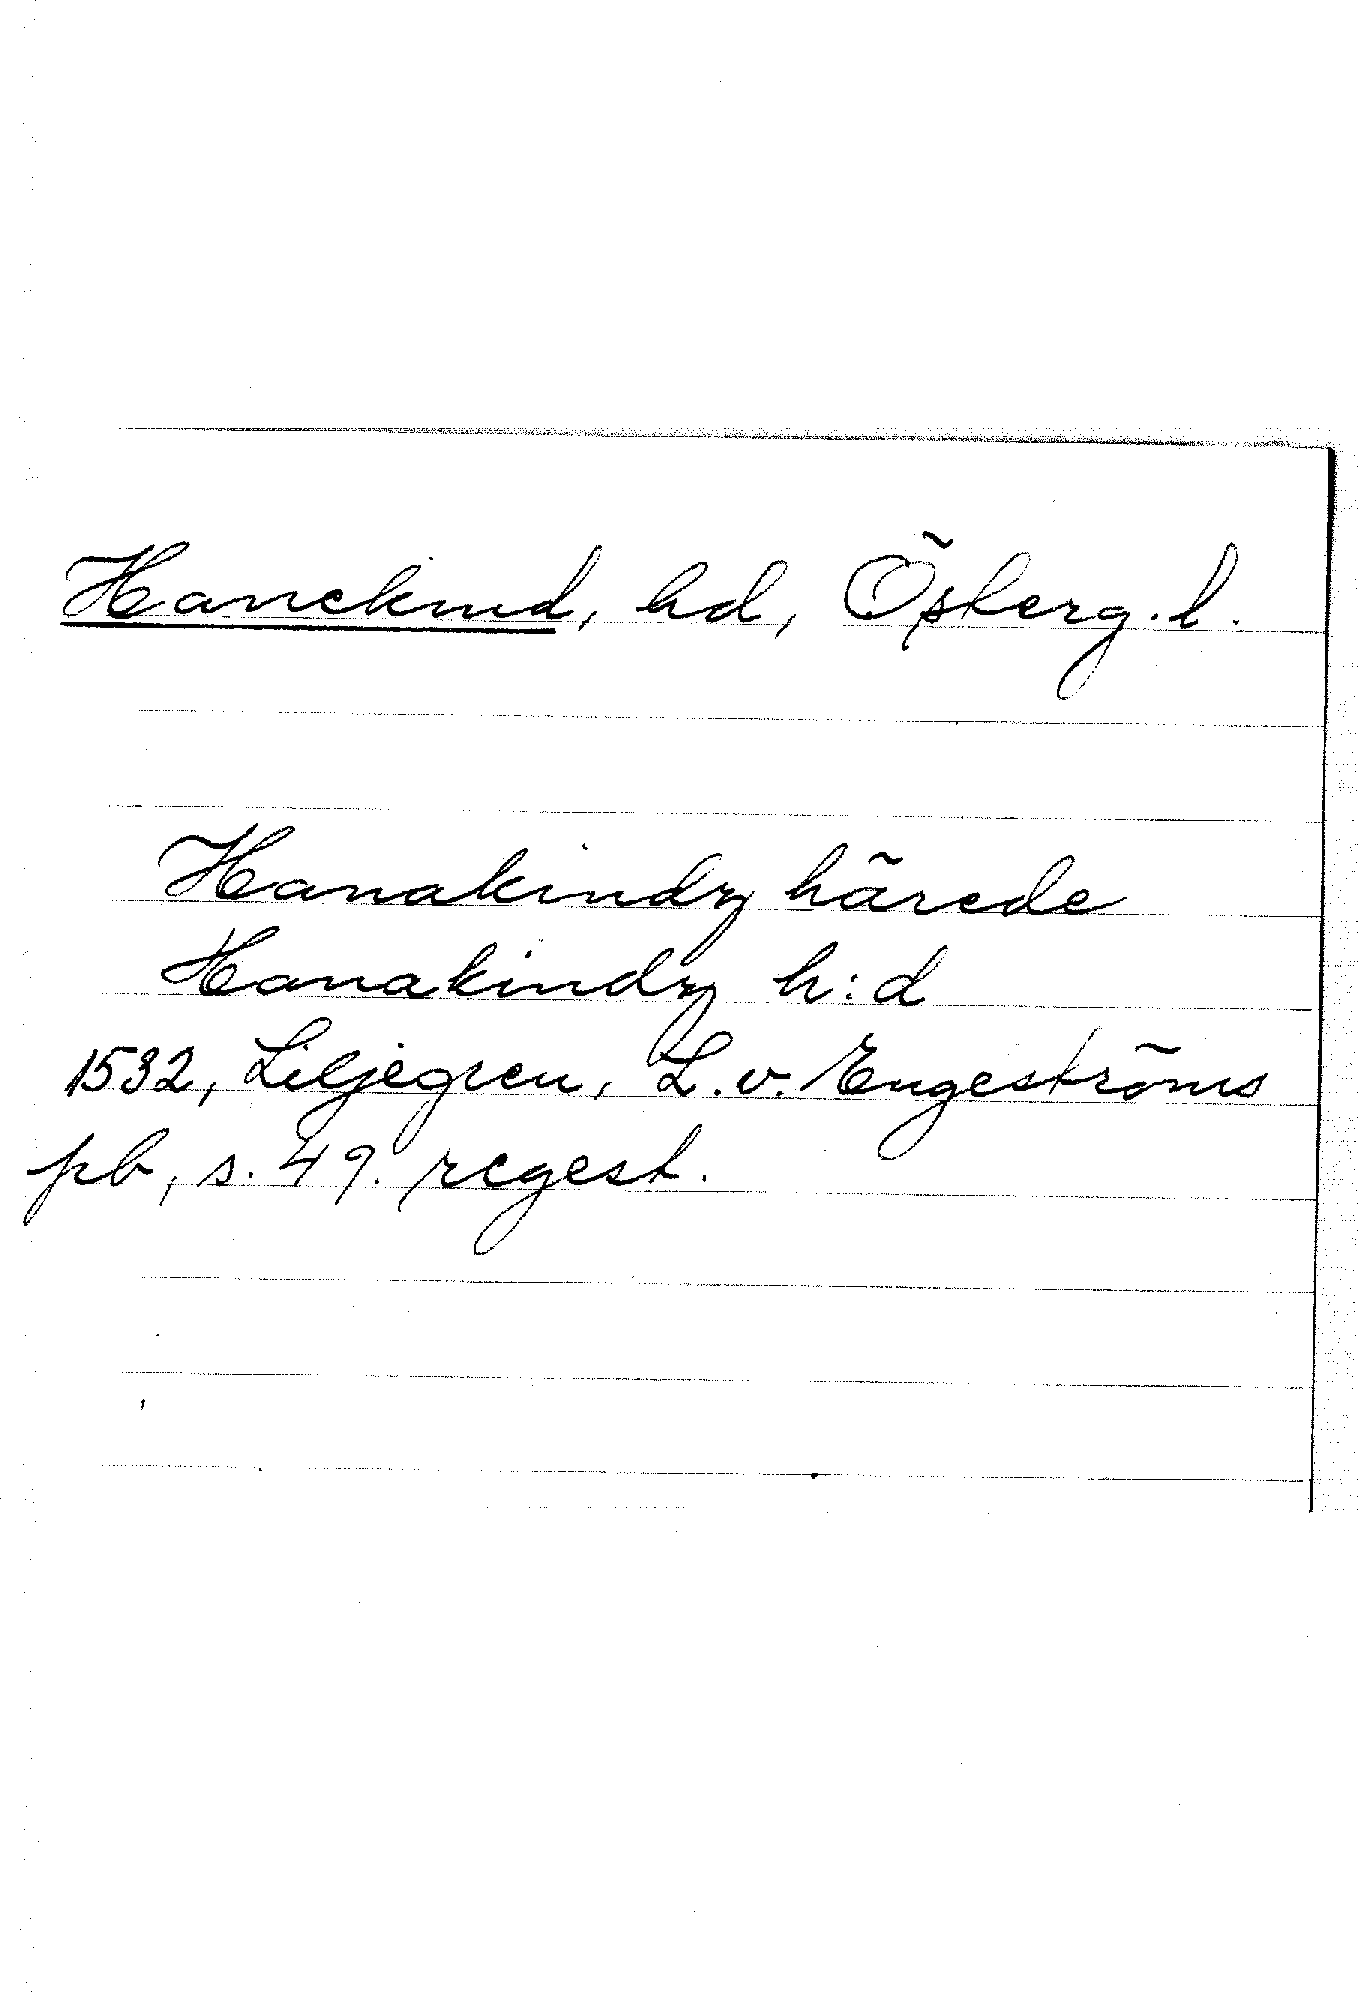 Hanekind, hd, Österg. l.
Hanakindz härede
Hanakindz h:d
1532, Liljegren, L. v. Engeströms
pb, s. 49. regest.